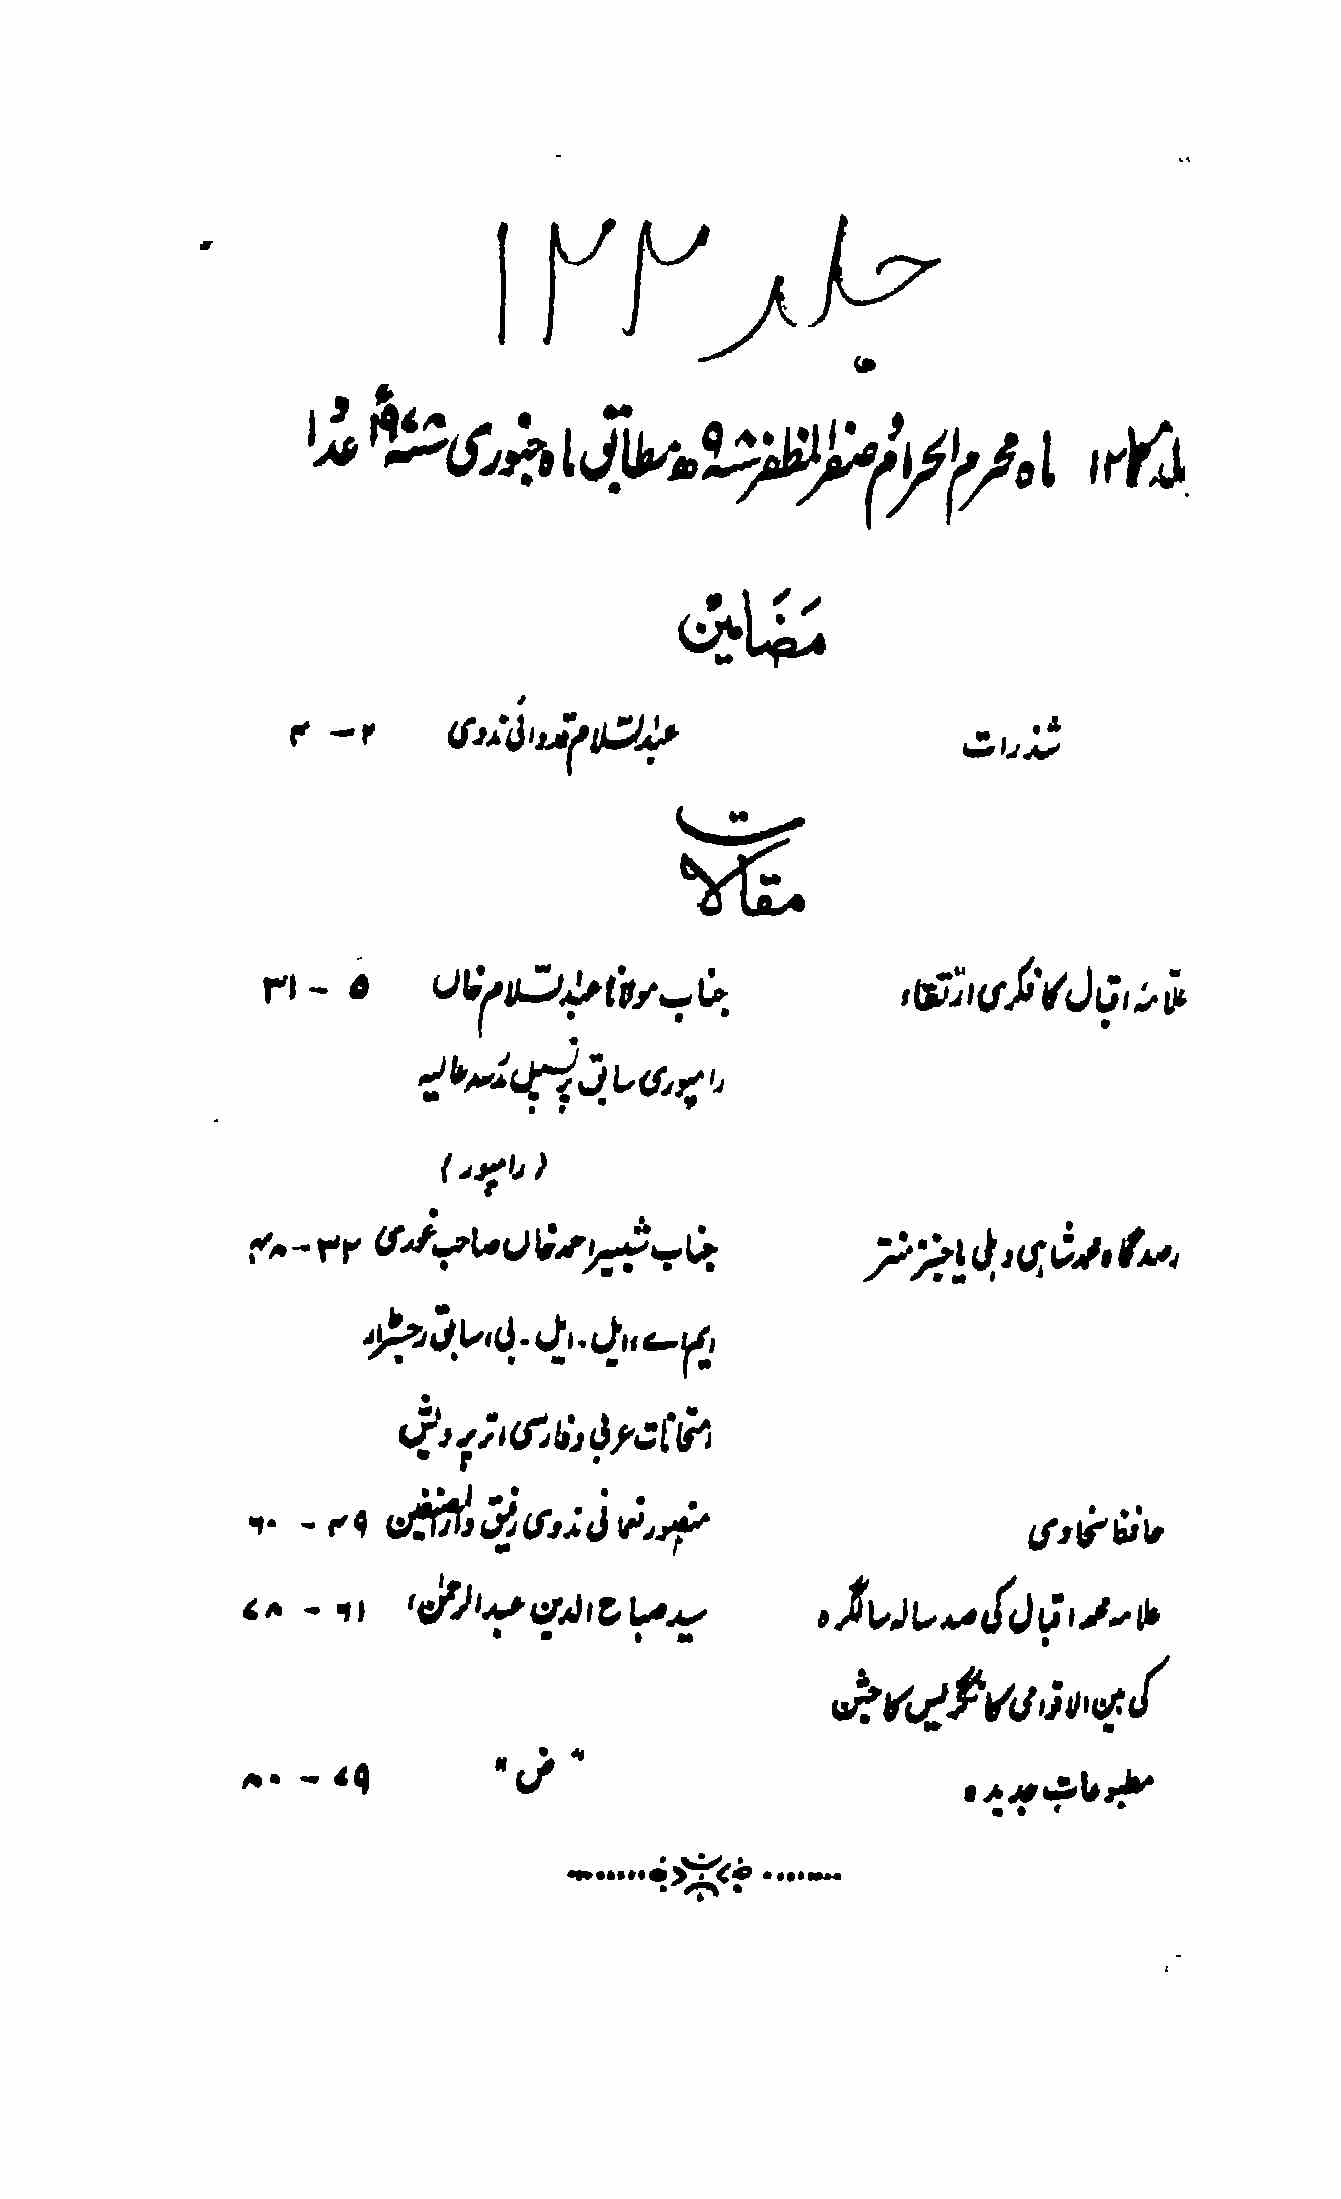 جلد ۱۲۲
ماہ محرم الحرام و صفر المظفر مطابق ماہ جنوری عدد ۱
مضامین
شذرات عبدالسلام قدوائی ندوی ۲ - ۴
مقالات
علامہ اقبال کا فکری ارتقاء جناب مولانا عبدالسلام خاں ۵ - ۳۱
رامپوری سابق پرنسپل مدرسہ عالیہ
(رامپور)
رصدگاہ محمد شاہی دہلی یا جنتر منتر جناب شبیر احمد خاں صاحب غوری ۳۲-۴۸
ایم اے، ایل۔ایل۔بی، سابق رجسٹرار
امتحانات عربی و فارسی اتر پردیش
حافظ سخاوی منصور نعمانی ندوی رفیق دارالمصنفین ۴۹ - ۶۰
علامہ محمد اقبال کی صد سالہ سالگرہ سید صباح الدین عبدالرحمٰن، ۶۱ - ۷۸
کی بین الاقوامی کانگریس کا جشن
مطبوعات جدیدہ "ض" ۷۹ - ۸۰